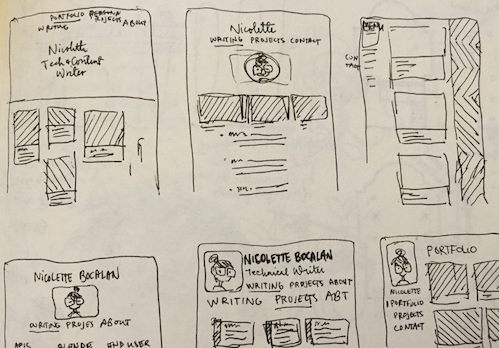 PORTFOLIO
WRITING PROJECTS ABOUT
Nicolette
Tech & Content
Writer
Nicolette
WRITING PROJECTS CONTACT
MENU
CON
NICOLETTE BOCALAN
WRITING PROJES ABOUT
APIS
END USER
NICOLETTE BOCALAN
Technical Writer
WRITING PROJECTS ABOUT
WRITING PROJECTS ABT
PORTFOLIO
NICOLETTE
PORTFOLIO
PROJECTS
CONTACT